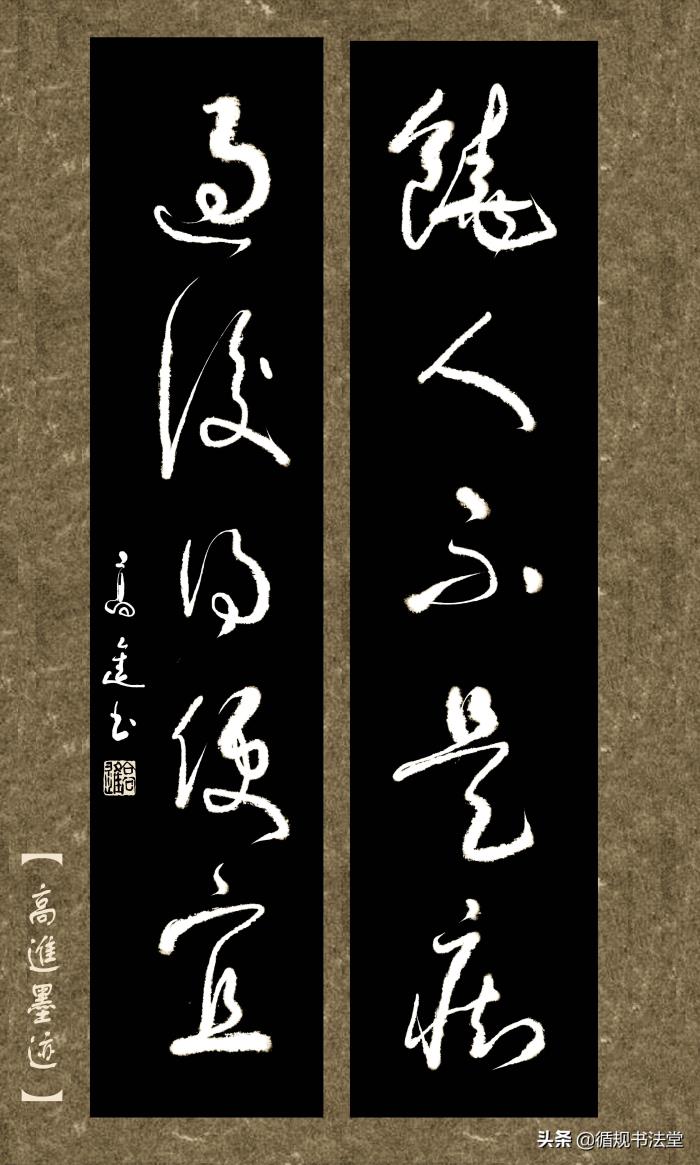 饒人不是痴
過後得便宜
高進书
【高進墨迹】
头条 @循规书法堂